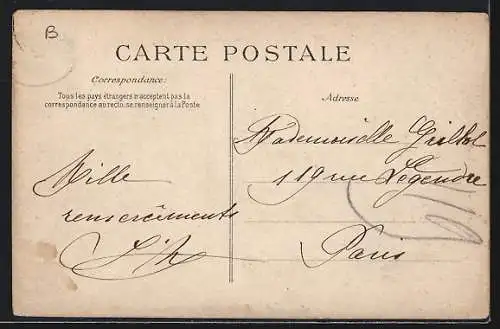 B
CARTE POSTALE
Correspondance:
Tous les pays étrangers n'acceptent pas la
correspondance au recto, se renseigner à la Poste
Mille
remerciements
Adresse
Mademoiselle
119 rue Legendre
Paris